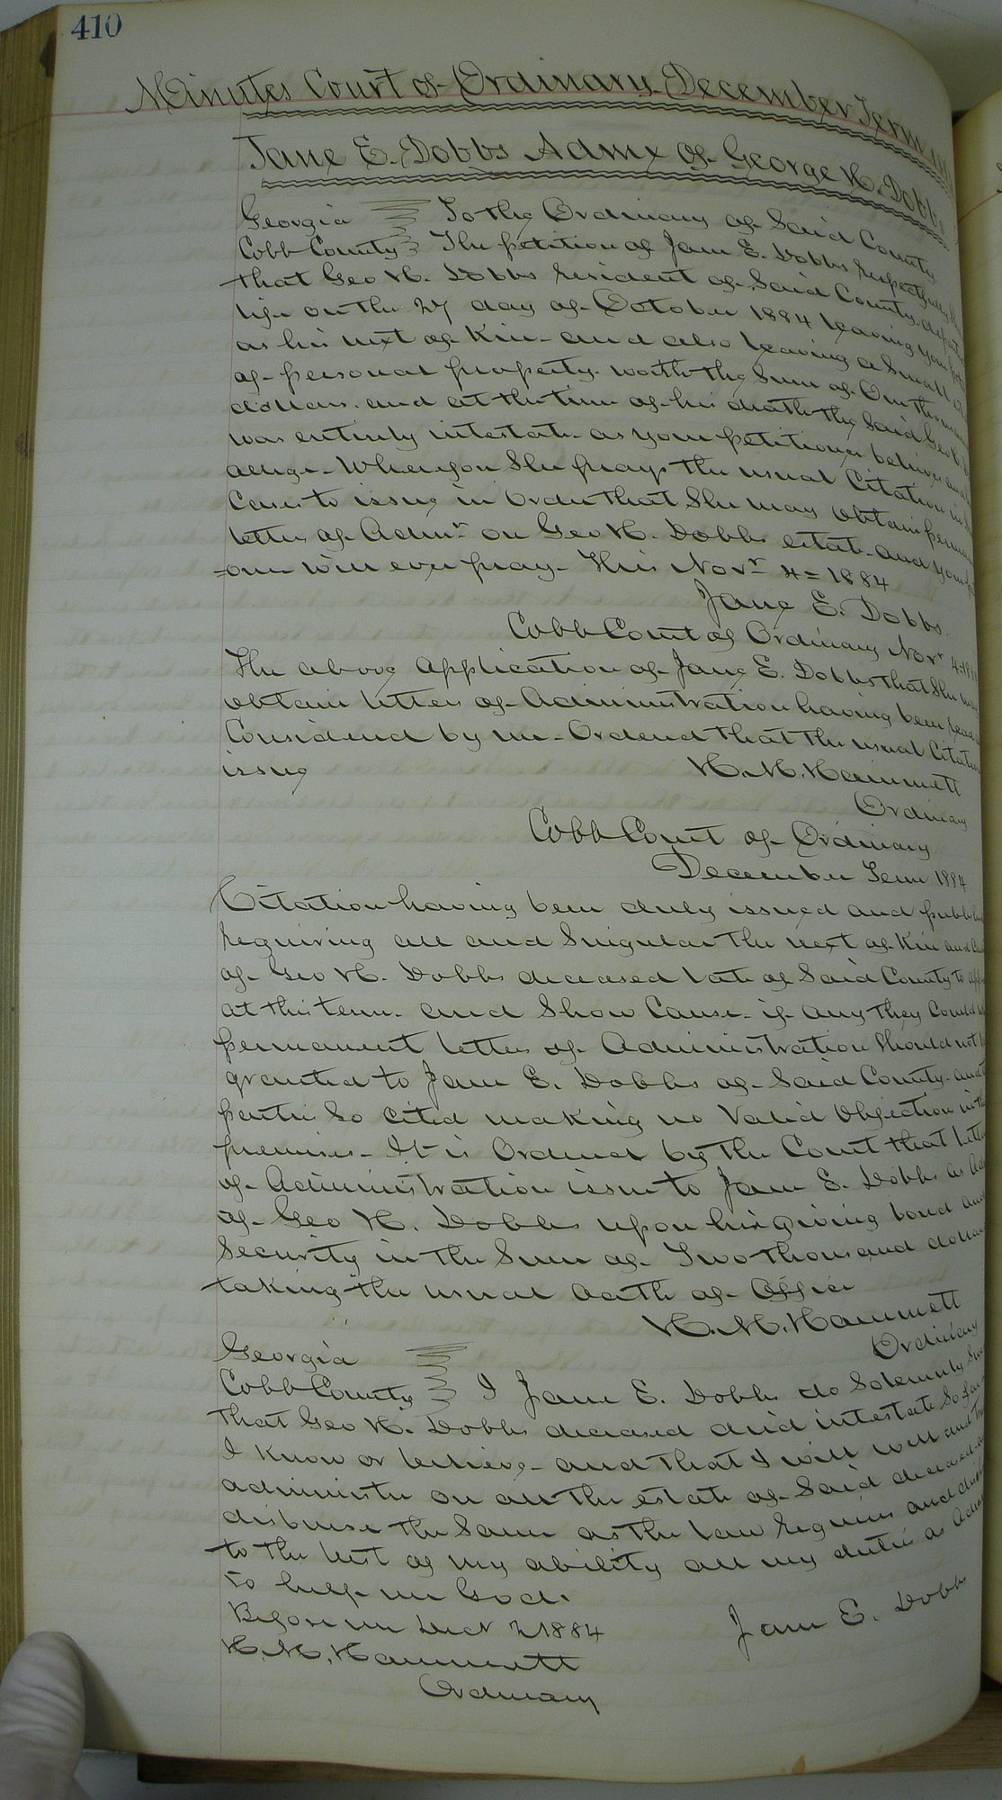 410
Minutes Court of Ordinary December Term
Jane E. Dobbs Admx of George N. Dobbs
Georgia To the Ordinary of Said County
Cobb County The petition of Jane E. Dobbs respectfully
that Geo N. Dobbs resident of Said County departed
life on the 27 day of October 1884 leaving your
as his next of Kin and also leaving a Small
of personal property worth the Sum of One thousand
dollars and at the time of his death the Said Geo N.
was entirely intestate as your petitioner believes and
allege Wherefore She prays the usual Citation in
Cases to issue in order that She may obtain
letters of Admr on Geo N. Dobbs estate and your
oner will ever pray This Novr 4 = 1884
Jane E. Dobbs
Cobb Court of Ordinary Novr 4
The above application of Jane E. Dobbs that She may
obtain letters of Administration having been read
Considered by me Ordered that the usual Citation
issue H. M. Hammett
Ordinary
Cobb Court of Ordinary
December Term 1884
Citation having been duly issued and
requiring all and Singular the next of Kin and
of Geo N. Dobbs deceased late of Said County to
at this term and Show Cause if any they Could
permanent letters of Administration Should not
granted to Jane E. Dobbs of Said County and
parties So cited making no Valid Objection in the
premises It is Ordered by the Court that letters
of Administration issue to Jane E. Dobbs as
of Geo N. Dobbs upon his giving bond and
Security in the Sum of Two thousand dollars
taking the usual oath of Office
H. M. Hammett
Ordinary
Georgia
Cobb County I Jane E. Dobbs do Solemnly
that Geo N. Dobbs deceased died intestate So far
I know or believe and that I will well and
administer on all the estate of Said deceased
disburse the Same as the law requires and
to the best of my ability all my duties as
So help me God.
Before me Dec 2 1884 Jane E. Dobbs
H. M. Hammett
Ordinary